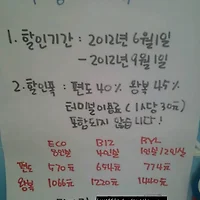 1. 할인기간 : 2012년 6월 1일
- 2012년 9월 1일
2. 할인폭 : 편도 40% 왕복 45%
터미널이용료 (1인당 30元)
포함되지 않습니다!
ECO B12 BVL
8인실 4인실 1인실/2인실
편도 570元 654元 774元
왕복 1066元 1220元 1440元